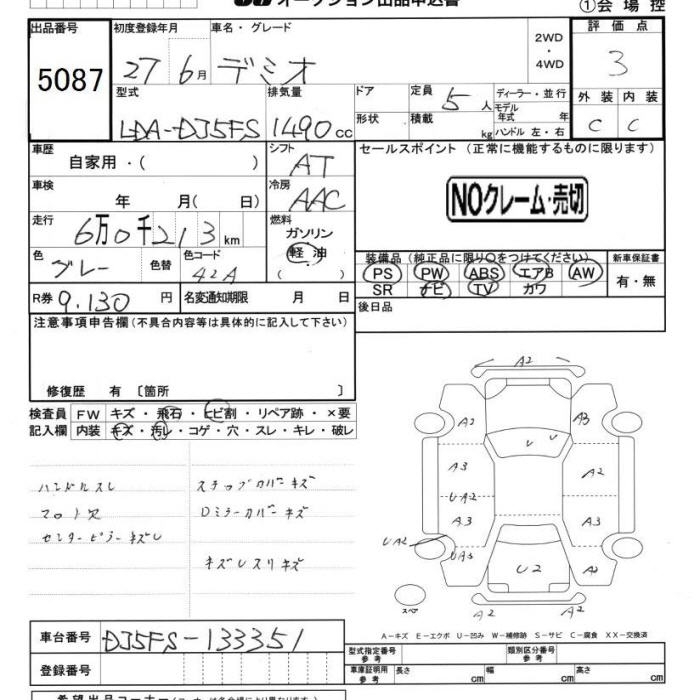 オークション出品申込書
①会場控
出品番号 初度登録年月 車名・グレード 2WD・4WD 評価点
5087 27 6月 デミオ 3
型式 排気量 ドア 定員 5人 ディーラー・並行 外装 内装
LDA-DJ5FS 1490cc 形状 積載 kg モデル年式 年 C C
ハンドル 左・右
車歴 シフト セールスポイント (正常に機能するものに限ります)
自家用・( ) AT
車検 冷房 NOクレーム・売切
年 月( 日) AAC
走行 燃料
6万0千213km ガソリン
色 色替 色コード 軽油 装備品(純正品に限り○をつけてください) 新車保証書
グレー 42A ( ) PS PW ABS エアB AW 有・無
R券 9,130円 名変通知期限 月 日 SR ナビ TV カワ
注意事項申告欄(不具合内容等は具体的に記入して下さい) 後日品
修復歴 有 〔箇所 〕
検査員 FW キズ・飛石・ヒビ割・リペア跡・×要
記入欄 内装 キズ・汚レ・コゲ・穴・スレ・キレ・破レ
ハンドルスレ ステップカバーキズ
フロト欠 Dミラーカバーキズ
センターピラーキズレ
キズレスリキズ
A2
A2 A3
U U
A3 A2
UA2
A3 A3
UA2
UA3 U2 A2
スペア A2 A2
A-キズ E-エクボ U-凹み W-補修跡 S-サビ C-腐食 XX-交換済
車台番号 DJ5FS-133351
登録番号
型式指定番号 参考 類別区分番号 参考
車庫証明用 参考 長さ cm 幅 cm 高さ cm
希望出品コーナー